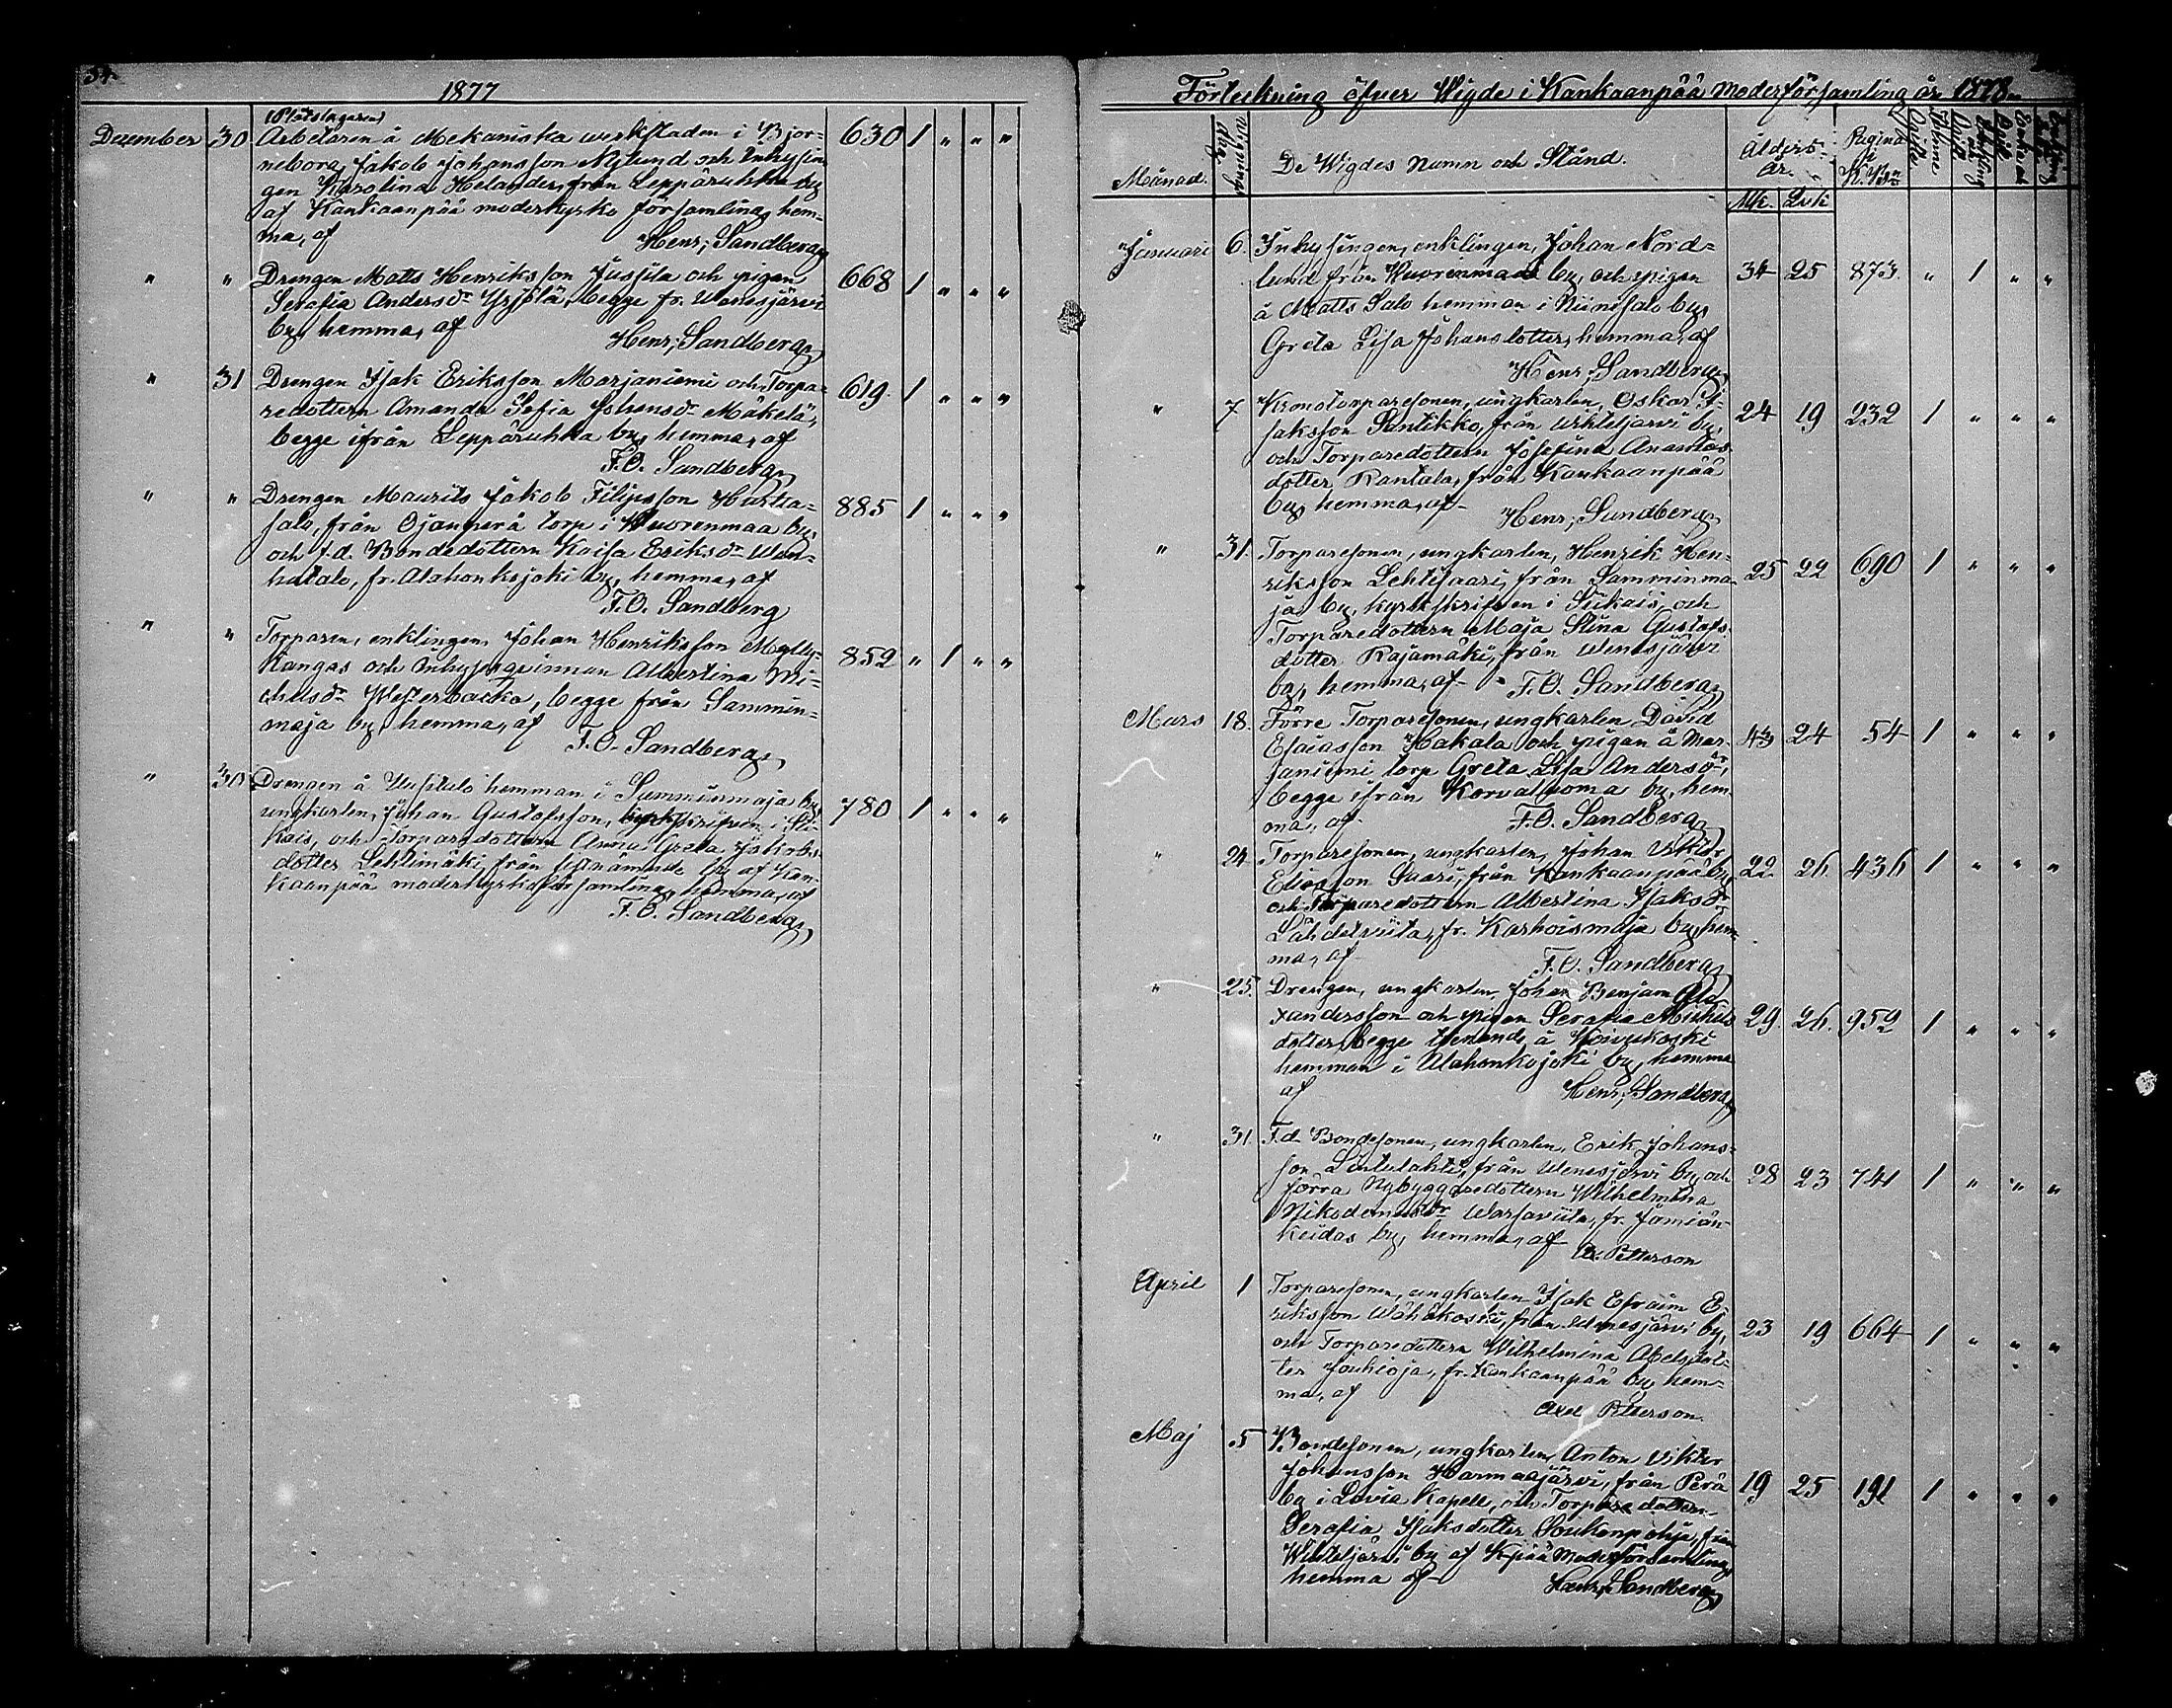 34.
1877
(Plåtslagaren)
December 30 Arbetaren å Mekaniska werkstaden i Bjor- 630 1 " " "
neborg, Jakob Johansson Nylund och Inhysin-
gen Karolina Helander, från Leppäruhka by
af Kankaanpää moderkyrko församling, hem-
ma, af Henr; Sandberg
" " Drengen Matts Henriksson Jussila och pigan 668 1 " " "
Serafia Andersdr Yrjölä, begge fr. Wenesjärvi
by, hemma, af
Henr; Sandberg
" 31 Drengen Isak Eriksson Marjaniemi och Torpa- 619. 1 " " "
redottern Amanda Sofia Johansdr Mäkelä,
begge ifrån Leppäruhka by, hemma, af
F. O. Sandberg
" " Drengen Maurits Jakob Filipsson Hartia- 885 1 " " "
salo, från Ojanperä torp i Wuorenmaa by,
och f.d. Bondedottern Kaisa Eriksdr Wan-
hatalo, fr. Alahonkojoki by, hemma, af
F. O. Sandberg
" " Torparen, enklingen, Johan Henriksson Mylly- 852 " 1 " "
kangas och Inhysesqvinnan Albertina Mi-
chelsdr Westerbacka, begge från Sammin-
maja by, hemma, af
F. O. Sandberg
" 30 Drengen å Uusitalo hemman i Samminmaja by, 780 1 " " "
ungkarlen, Johan Gustafsson, kyrkskrifven i Sii-
kais, och Torparedottern Anna Greta Jakobs-
dotter Lehtimäki, från sistnämnde by af Kan-
kaanpää moderkyrkoförsamling, hemma, af
F. O. Sandberg
Förteckning öfver Wigde i Kankaanpää Moderförsamling år 1878.
Månad. Wignings dag. De Wigdes Namn och Stånd. Ålders- år. Pagina i K. Bn
Mk. Qvk
Januari 6. Inhysingen, enklingen, Johan Nord-
lund från Wuorenmaa by, och pigan 34 25 873. " 1 " "
å Matts Salo hemman i Niinisalo by,
Greta Lisa Johansdotter, hemma, af
Henr; Sandberg
" 7 Kronotorparesonen, ungkarlen, Oskar I- 24 19 232 1 " " "
saksson Santikko, från Wihteljärvi by,
och Torparedottern Josefina Ananias-
dotter Rantala, från Kankaanpää
by, hemma, af
Henr; Sandberg
" 31. Torparesonen, ungkarlen, Henrik Hen-
riksson Lehtisaari, från Samminma- 25 22 690 1 " " "
ja by, kyrkskrifven i Siikais, och
Torparedottern Maja Stina Gustafs-
dotter Rajamäki, från Wenesjärvi
by, hemma, af F. O. Sandberg
Mars 18. Förre Torparesonen, ungkarlen David
Esaiasson Hakala och pigan å Mar- 43 24 54 1 " " "
janiemi torp Greta Lisa Andersdr,
begge ifrån Korvaluoma by, hem-
ma, af F. O. Sandberg
" 24. Torparesonen, ungkarlen, Johan Viktor
Eliasson Saari, från Kankaanpää by, 22. 26 436 1 " " "
och Torparedottern Albertina Isaksdr
Lähdetviita, fr. Karhoismaja by, hem-
ma, af
F. O. Sandberg
" 25. Drengen, ungkarlen, Johan Benjam Ale-
xandersson och pigan Serafia Michels- 29. 26. 952 1 " " "
dotter, begge tjenande å Koivukoski
hemman i Alahonkojoki by, hemma
af Henr; Sandberg
" 31. F.d. Bondesonen, ungkarlen, Erik Johans-
son Lintulahti, från Wenesjärvi by, och 28 23 741 1 " " "
förra Nybyggaredottern Wilhelmina
Nikodemusdr Warsaviita, fr. Jämiän-
keidas by, hemma, af
Ax. Petterson
April 1 Torparesonen, ungkarlen Isak Efraim E-
riksson Wähäkoski, från Wenesjärvi by, 23 19 664 1 " " "
och Torparedottern Wilhelmina Abelsdot-
ter Joukioja, fr. Kankaanpää by, hem-
ma, af
Axel Petterson
Maj 5 Bondesonen, ungkarlen, Anton Viktor
Johansson Harmaajärvi, från Perä 19 25 191 1 " " "
by i Lavia Kapell, och Torparedottern
Serafia Isaksdotter Soukanpohja, från
Wihteljärvi by af Kpää Moderförsamling,
hemma af
Henr; Sandberg